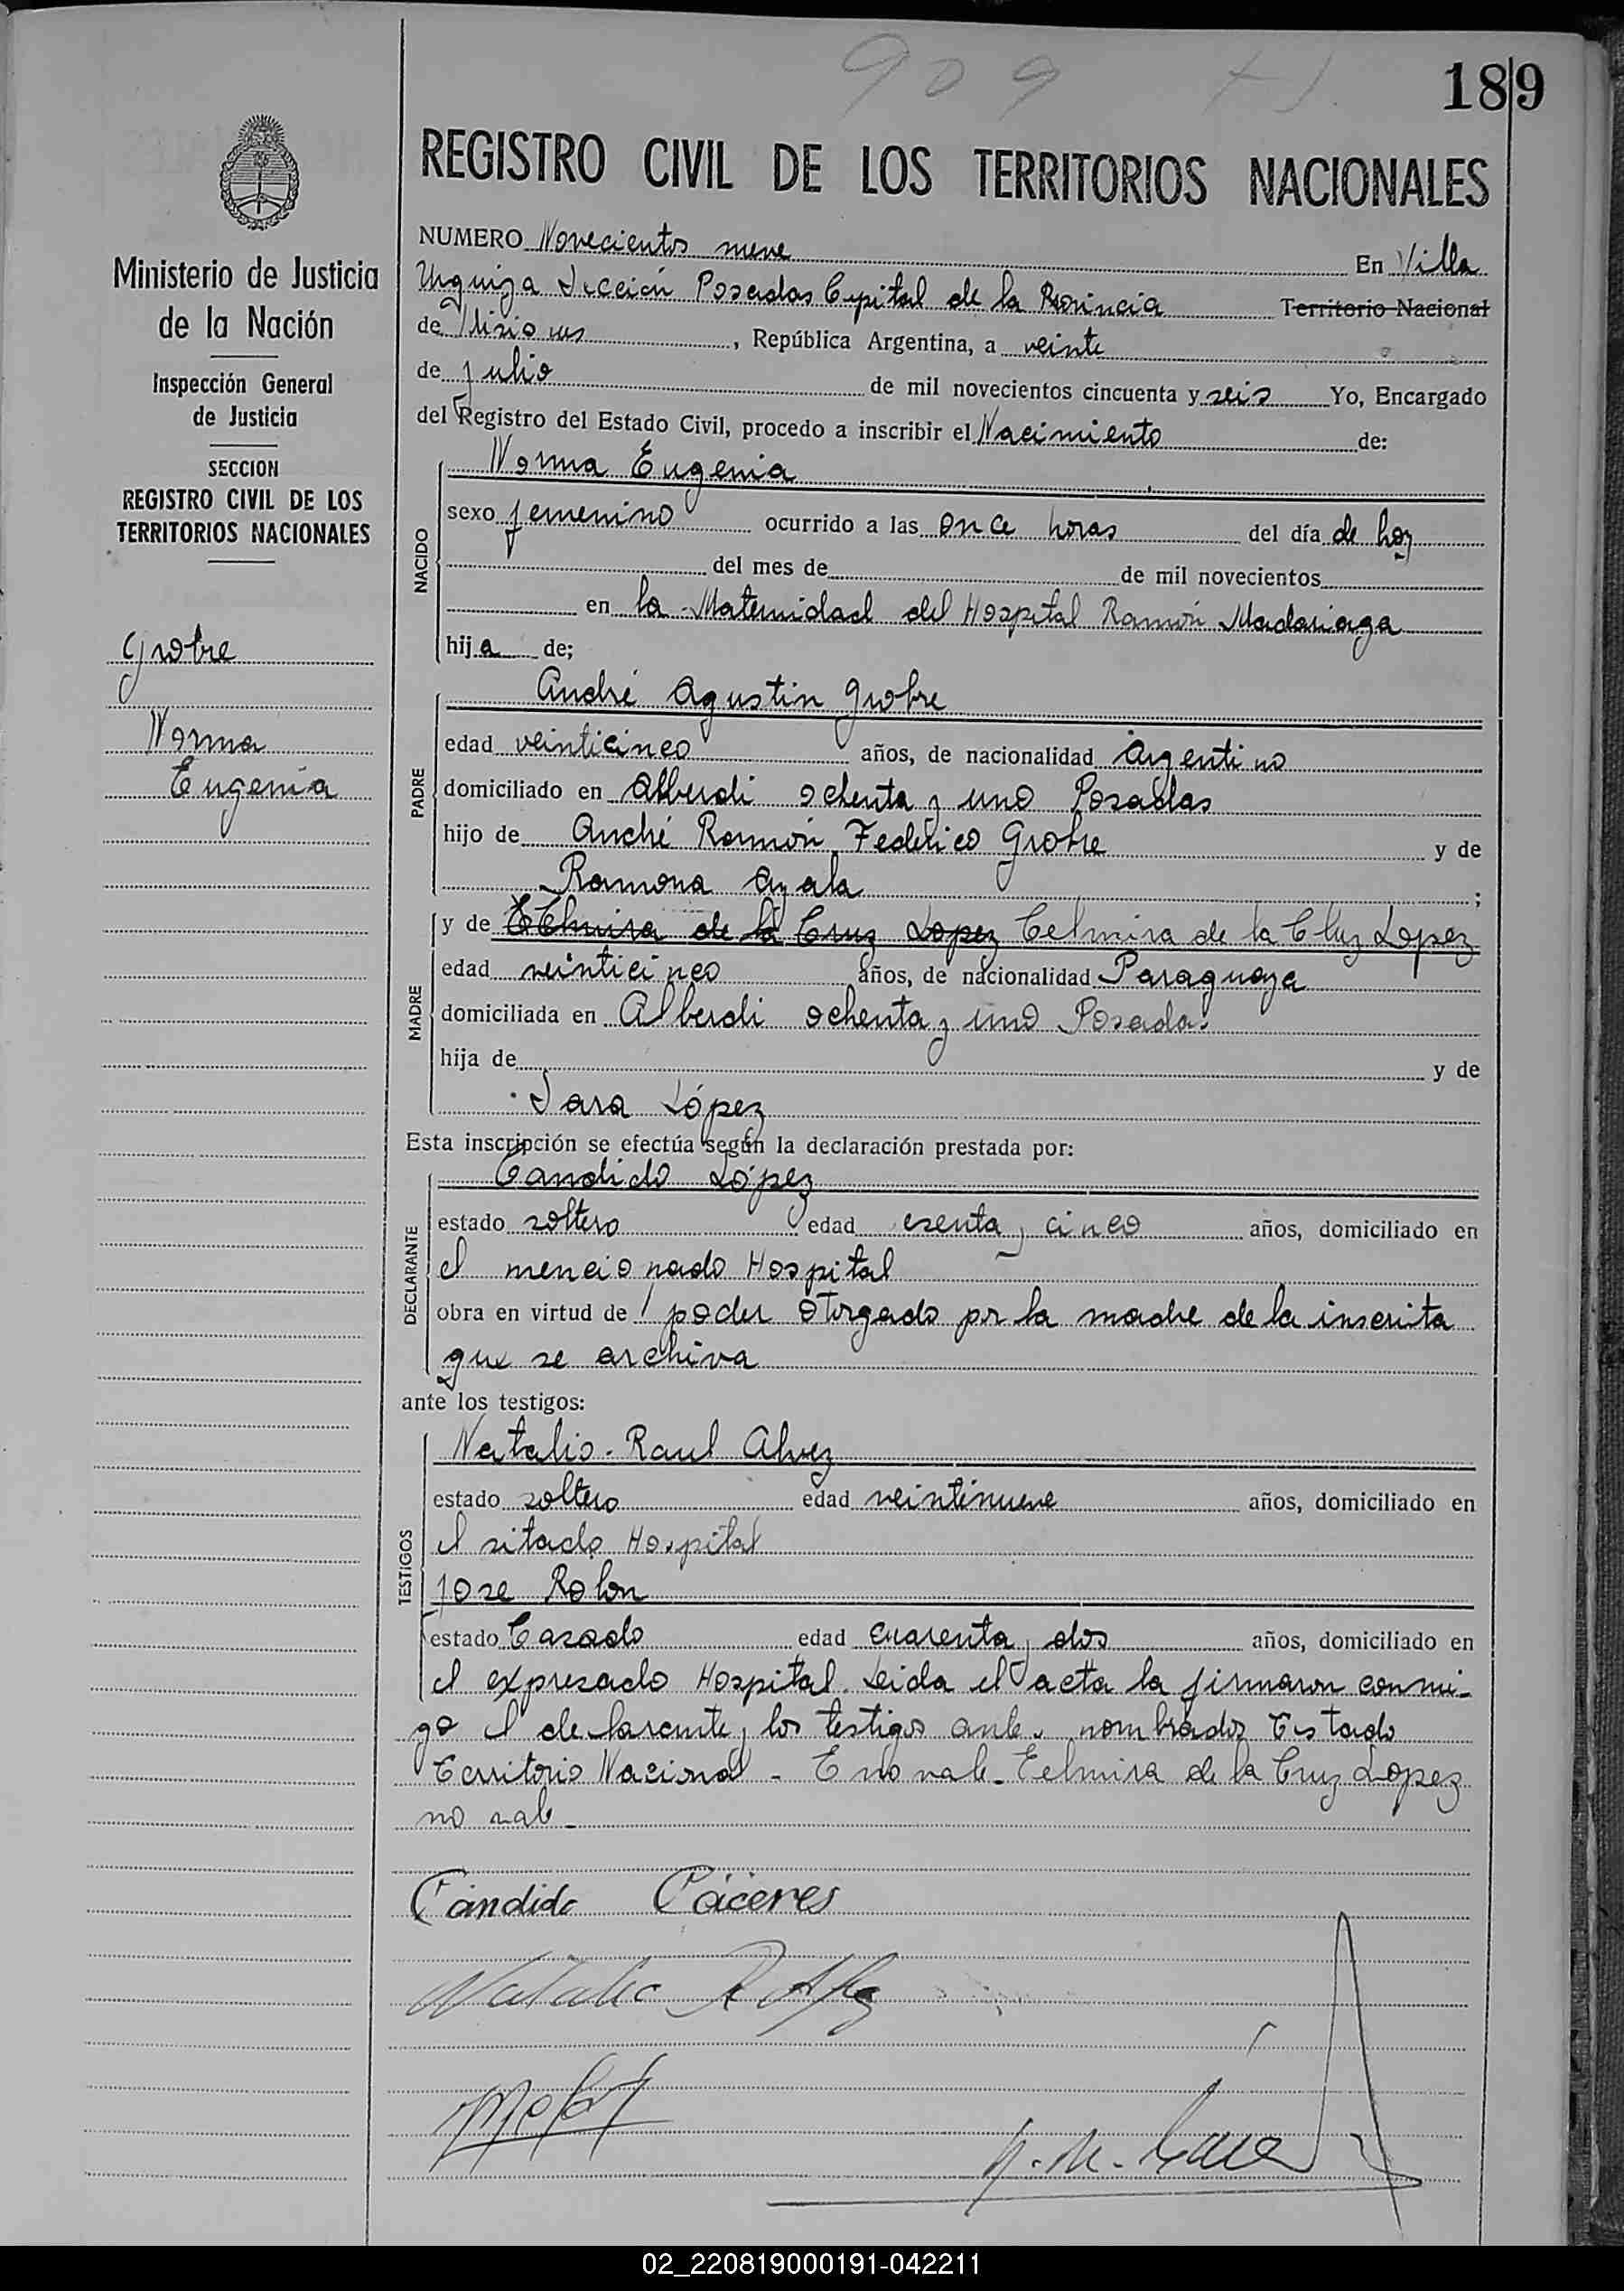 909
189
REGISTRO CIVIL DE LOS TERRITORIOS NACIONALES
Ministerio de Justicia
de la Nación
Inspección General
de Justicia
SECCION
REGISTRO CIVIL DE LOS
TERRITORIOS NACIONALES
Grobre
Norma
Eugenia
NUMERO Novecientos nueve En Villa
Urquiza Sección Posadas Capital de la Provincia Territorio Nacional
de Misiones, República Argentina, a veinte
de julio de mil novecientos cincuenta y seis Yo, Encargado
del Registro del Estado Civil, procedo a inscribir el Nacimiento de:
NACIDO
Norma Eugenia
sexo femenino ocurrido a las once horas del día de hoy
del mes de de mil novecientos
en la Maternidad del Hospital Ramón Madariaga
hija de;
PADRE
André Agustin Grobre
edad veinticinco años, de nacionalidad Argentino
domiciliado en Alberdi ochenta y uno Posadas
hijo de André Ramón Federico Grobre y de
Ramona Ayala ;
MADRE
y de Elmira de la Cruz Lopez Celmira de la Cruz Lopez
edad veinticinco años, de nacionalidad Paraguaya
domiciliada en Alberdi ochenta y uno Posadas
hija de y de
Sara López
Esta inscripción se efectúa según la declaración prestada por:
DECLARANTE
Candido López
estado soltero edad esenta y cinco años, domiciliado en
el mencionado Hospital
obra en virtud de poder otorgado por la madre de la inscrita
que se archiva
ante los testigos:
TESTIGOS
Natalio Raul Alvez
estado soltero edad veintinueve años, domiciliado en
el sitado Hospital
Jose Rolon
estado Casado edad cuarenta y dos años, domiciliado en
el expresado Hospital Leida el acta la firmaron conmi-
go el declarante y los testigos ante nombrados Testado
Territorio Nacional - E no vale - Celmira de la Cruz Lopez
no vale -
Cándido Cáceres
Natalio R Alvez
02_220819000191-042211